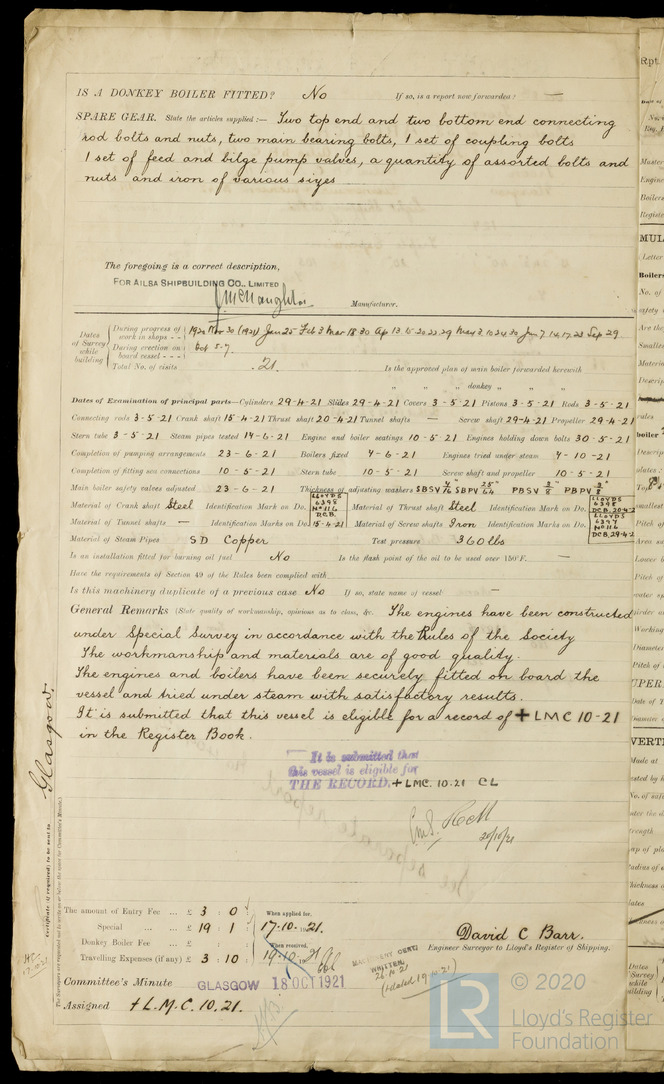 IS A DONKEY BOILER FITTED? No If so, is a report now forwarded? —
SPARE GEAR. State the articles supplied:— Two top end and two bottom end connecting
rod bolts and nuts, two main bearing bolts, 1 set of coupling bolts
1 set of feed and bilge pump valves, a quantity of assorted bolts and
nuts and iron of various sizes
The foregoing is a correct description,
FOR AILSA SHIPBUILDING CO., LIMITED
J McNaughton Manufacturer.
Dates of Survey while building
During progress of work in shops - - 1920 Nov 30 (1921) Jan 25 Feb 3 Mar 18 30 Ap 13 15 20 22 29 May 3 10 24 30 Jun 7 14 17 23 Sep 29
During erection on board vessel - - - Oct 5 7
Total No. of visits 21. Is the approved plan of main boiler forwarded herewith
" " " donkey " " "
Dates of Examination of principal parts—Cylinders 29-4-21 Slides 29-4-21 Covers 3-5-21 Pistons 3-5-21 Rods 3-5-21
Connecting rods 3-5-21 Crank shaft 15-4-21 Thrust shaft 20-4-21 Tunnel shafts — Screw shaft 29-4-21 Propeller 29-4-21
Stern tube 3-5-21 Steam pipes tested 14-6-21 Engine and boiler seatings 10-5-21 Engines holding down bolts 30-5-21
Completion of pumping arrangements 23-6-21 Boilers fixed 7-6-21 Engines tried under steam 7-10-21
Completion of fitting sea connections 10-5-21 Stern tube 10-5-21 Screw shaft and propeller 10-5-21
Main boiler safety valves adjusted 23-6-21 Thickness of adjusting washers SBSV 7/16 SBPV 25/64 PBSV 3/8 PBPV 3/8
Material of Crank shaft Steel Identification Mark on Do. LLOYDS 6398 No 116 D.C.B. 15-4-21 Material of Thrust shaft Steel Identification Mark on Do. LLOYDS DCB. 20-4-21
Material of Tunnel shafts — Identification Marks on Do. Material of Screw shafts Iron Identification Marks on Do. LLOYDS 6397 No 116 DCB. 29-4-21
Material of Steam Pipes SD Copper Test pressure 360 lbs
Is an installation fitted for burning oil fuel No Is the flash point of the oil to be used over 150°F. —
Have the requirements of Section 49 of the Rules been complied with
Is this machinery duplicate of a previous case No If so, state name of vessel —
General Remarks (State quality of workmanship, opinions as to class, &c. The engines have been constructed
under Special Survey in accordance with the Rules of the Society
The workmanship and materials are of good quality.
The engines and boilers have been securely fitted on board the
vessel and tried under steam with satisfactory results.
It is submitted that this vessel is eligible for a record of + LMC 10-21
in the Register Book.
It is submitted that
this vessel is eligible for
THE RECORD. + LMC. 10.21 CL
20/10/21
Glasgow.
Certificate (if required) to be sent to
The amount of Entry Fee ... £ 3 : 0 : When applied for,
Special ... £ 19 : 1 17.10.1921.
Donkey Boiler Fee ... £ : : When received,
Travelling Expenses (if any) £ 3 : 10 19.10.1921
David C Barr.
Engineer Surveyor to Lloyd's Register of Shipping.
MACHINERY CERT.
WRITTEN.
Committee's Minute GLASGOW 18 OCT 1921
Assigned + L.M.C. 10.21.
LR © 2020
Lloyd's Register
Foundation